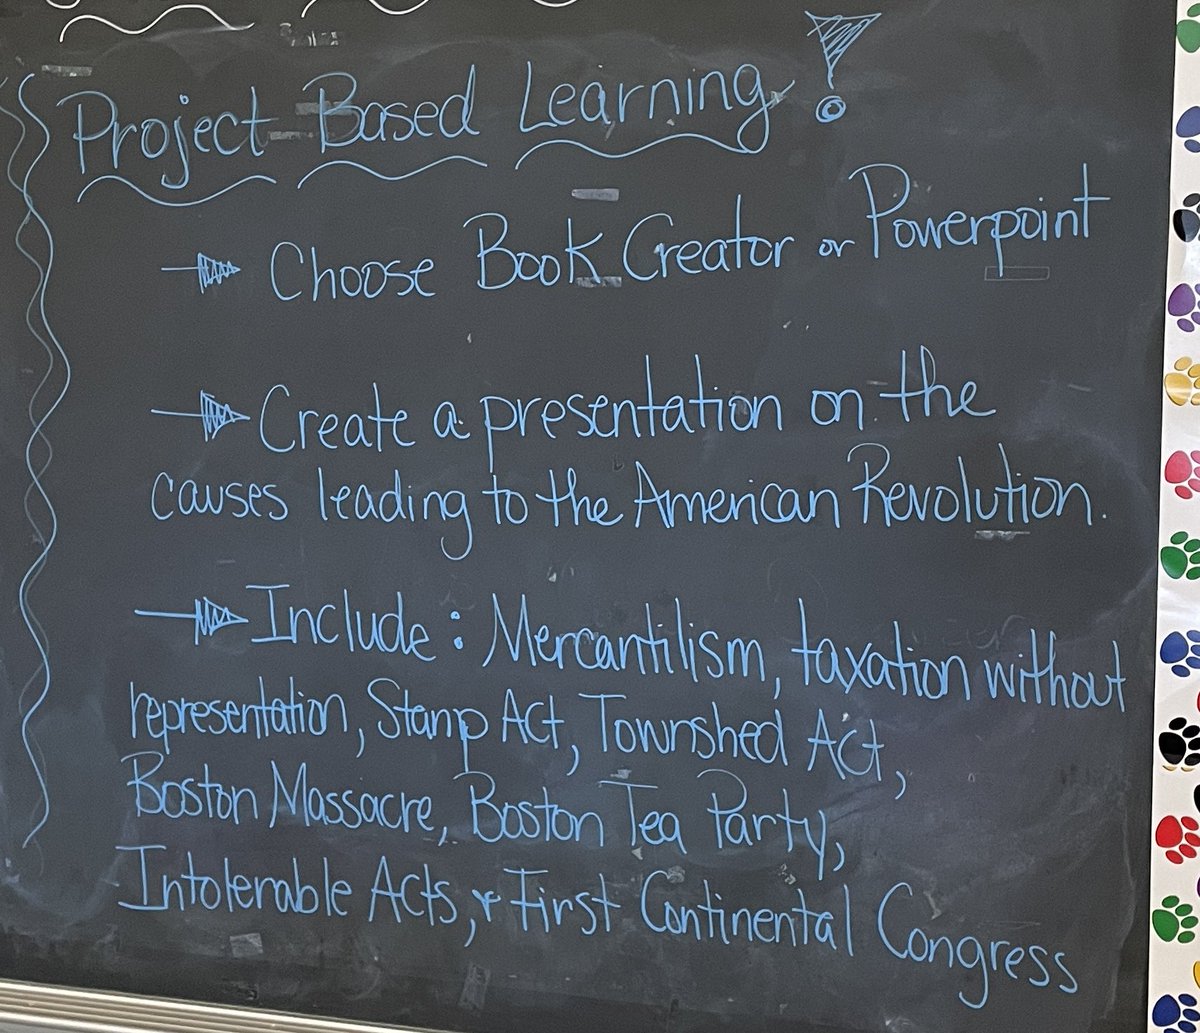 Project Based Learning!
Choose Book Creator or Powerpoint
Create a presentation on the
causes leading to the American Revolution.
Include: Mercantilism, taxation without
representation, Stamp Act, Townshed Act,
Boston Massacre, Boston Tea Party,
Intolerable Acts, & First Continental Congress